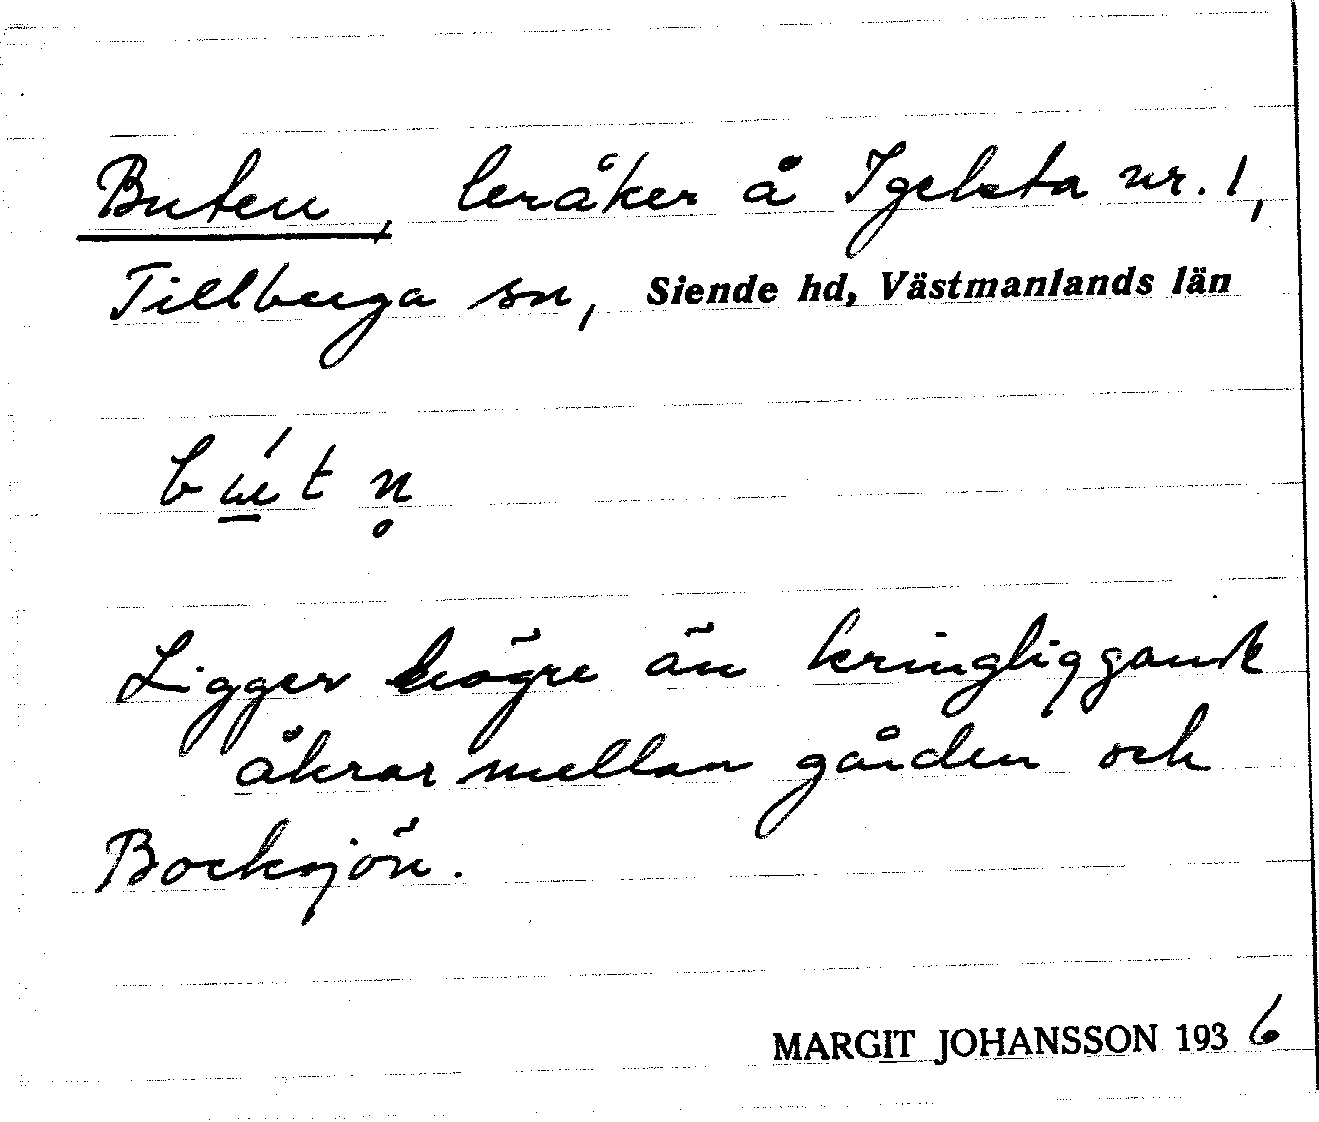 Buten, leråker å Igelsta nr. 1,
Tillberga sn, Siende hd, Västmanlands län
bɯ̲́tn̥
Ligger högre än kringliggande
åkrar mellan gården och
Bocksjön.
MARGIT JOHANSSON 1936